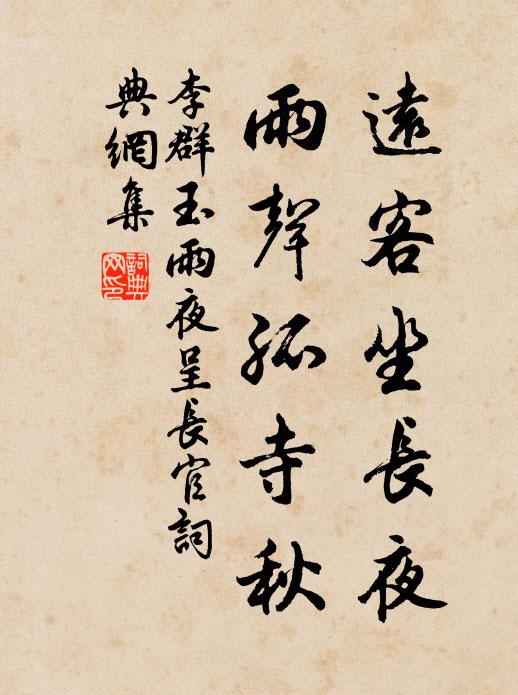 遠客坐長夜
雨聲孤寺秋
李群玉雨夜呈長官詞
典網集
詞典网印